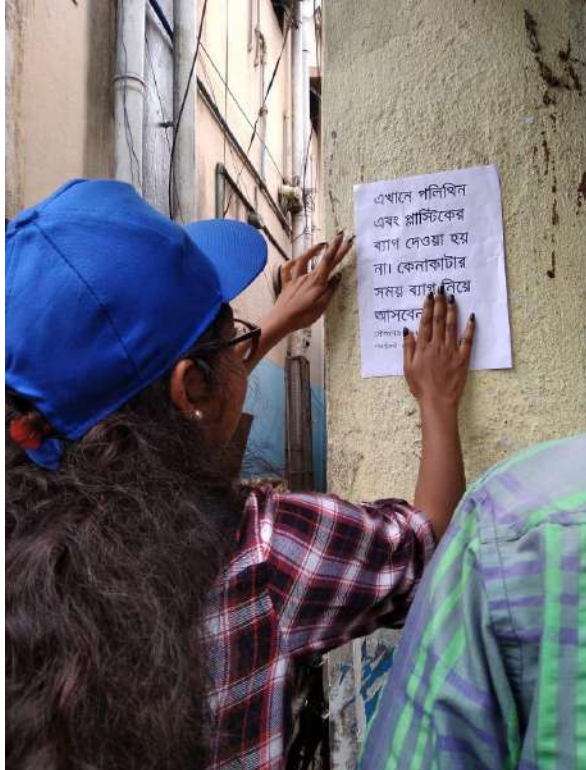 এখানে পলিথিন
এবং প্লাস্টিকের
ব্যাগ দেওয়া হয়
না। কেনাকাটার
সময় ব্যাগ নিয়ে
আসবেন